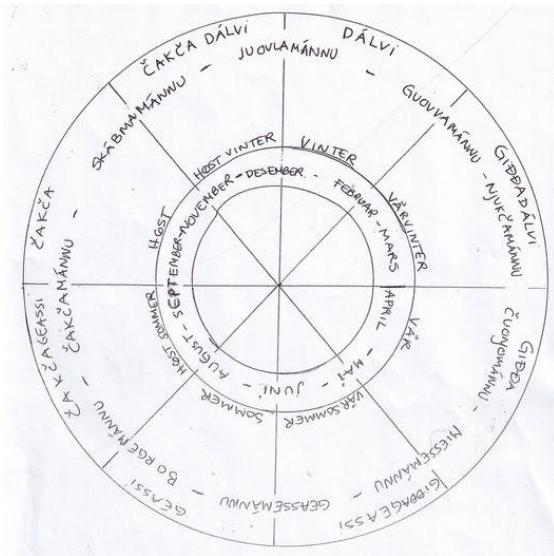 DÁLVI
GIĐĐADÁLVI
GIĐĐA
GIĐĐAGEASSI
GEASSI
ČAKČAGEASSI
ČAKČA
ČAKČA DÁLVI
JUOVLAMÁNNU - GUOVVAMÁNNU - NJUKČAMÁNNU
ČUOŊOMÁNNU - MIESSEMÁNNU - GEASSEMÁNNU - BORGEMÁNNU - ČAKČAMÁNNU - SKÁBMAMÁNNU -
VINTER
VÅRVINTER
VÅR
VÅRSOMMER
SOMMER
HØSTSOMMER
HØST
HØSTVINTER
DESEMBER - FEBRUAR - MARS
APRIL - MAI - JUNI - AUGUST - SEPTEMBER - NOVEMBER -